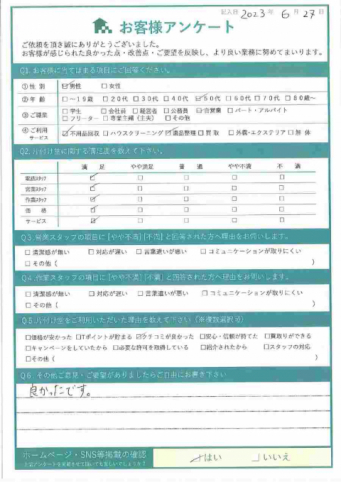 記入日 2023年 6月 27日
お客様アンケート
ご依頼を頂き誠にありがとうございました。
お客様が感じられた良かった点・改善点・ご要望を反映し、より良い業務に努めてまいります。
Q1. お客様に当てはまる項目にご回答ください。
①性 別 ☑男性 □女性
②年 齢 □～19歳 □20代 □30代 □40代 ☑50代 □60代 □70代 □80歳～
③ご職業 □学生 □会社員 □経営者 □公務員 ☑自営業 □パート・アルバイト
□フリーター □専業主婦（主夫） □その他
④ご利用サービス ☑不用品回収 □ハウスクリーニング ☑遺品整理 □買取 □外構・エクステリア □解体
Q2. 片付け堂に関する満足度を教えて下さい。
満 足 やや満足 普 通 やや不満 不 満
電話スタッフ ☑ □ □ □ □
営業スタッフ ☑ □ □ □ □
作業スタッフ ☑ □ □ □ □
価 格 ☑ □ □ □ □
サービス ☑ □ □ □ □
Q3. 営業スタッフの項目に「やや不満」「不満」と回答された方へ理由をお伺いします。
□清潔感が無い □対応が遅い □言葉遣いが悪い □コミュニケーションが取りにくい
□その他（ ）
Q4. 作業スタッフの項目に「やや不満」「不満」と回答された方へ理由をお伺いします。
□清潔感が無い □対応が遅い □言葉遣いが悪い □コミュニケーションが取りにくい
□その他（ ）
Q5. 片付け堂をご利用いただいた理由を教えて下さい（※複数選択可）
□価格が安かった □Tポイントが貯まる ☑クチコミが良かった □安心・信頼が持てた □買取りができる
□キャンペーンをしていたから □必要な許可を取得している □紹介されたから □スタッフの対応
□その他（ ）
Q6. その他ご意見・ご要望がありましたらご自由にお書き下さい
良かったです。
ホームページ・SNS等掲載の確認
☑はい □いいえ